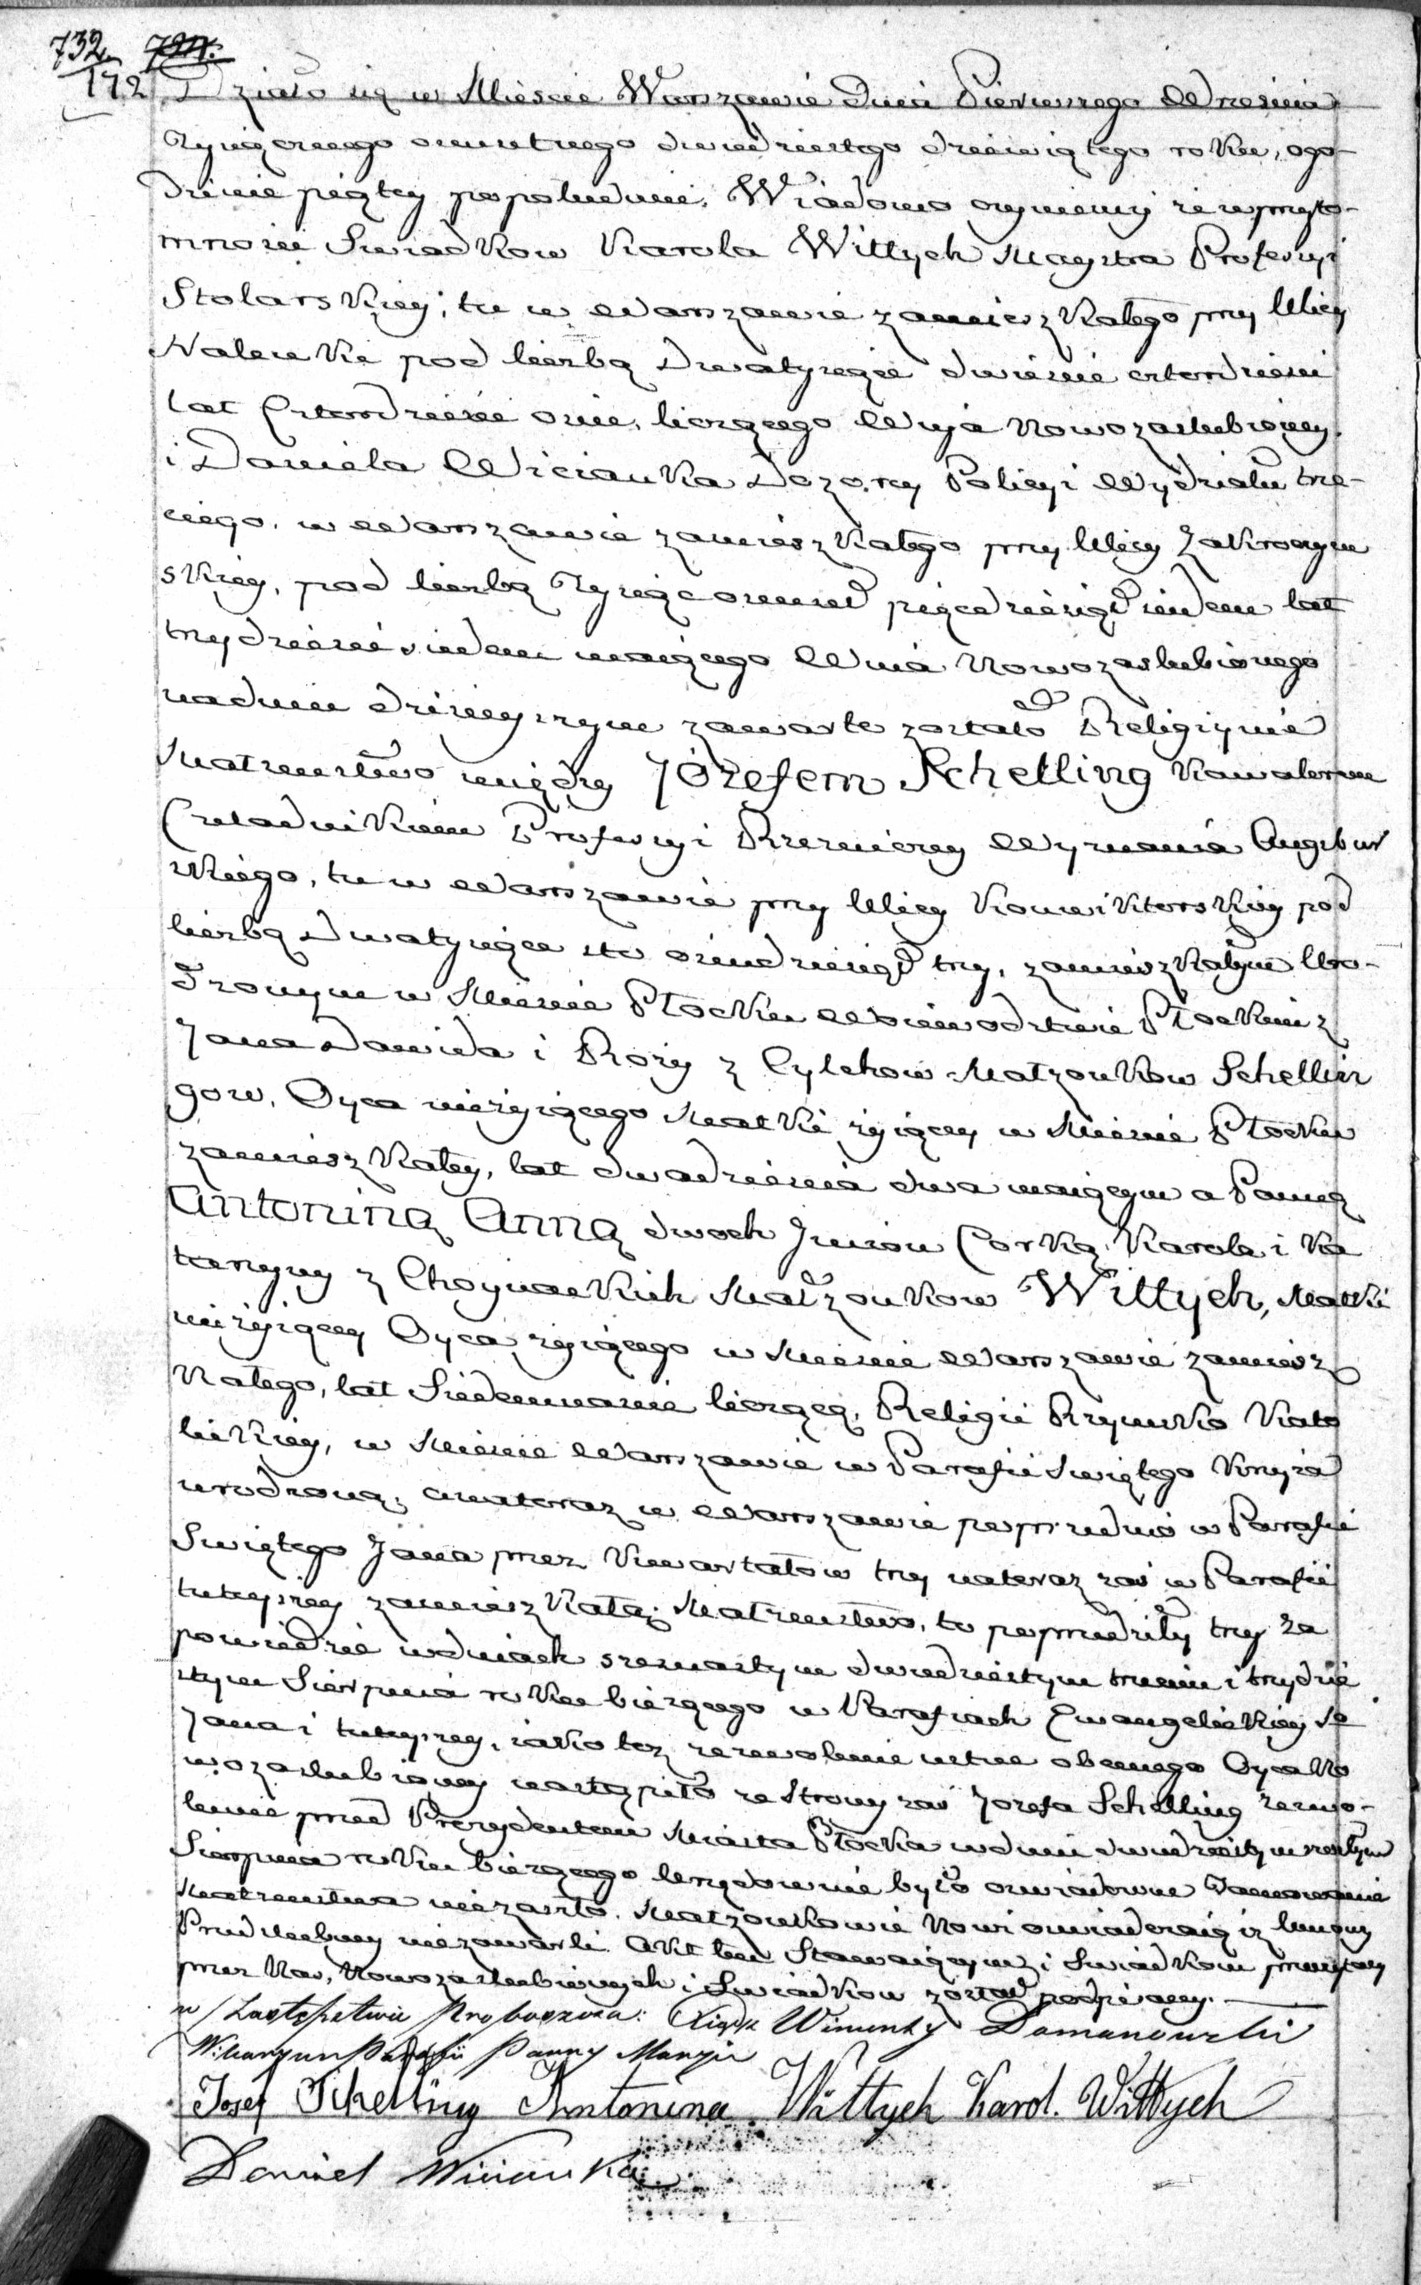 732. 727.
172 Działo się w Miescie Warszawie dnia Pierwszego Wrzesnia
Tysiącznego osmsetnego dwudziestego dziewiątego roku, ogo-
dzinie piątey popołudniu. Wiadomo czyniemy że w przyto-
mnosci Swiadkow Karola Wittych Maystra Profesyi
Stolarskiey, tu w Warszawie zamieszkałego przy Ulicy
Nalewki pod liczbą Dwatysiące dwiescie czterdziesci
lat Czterdziesci osm, liczącego Wuja Nowozaslubioney.
i Daniela Wicianka Dozorcy Policyi Wydziału trze-
ciego, w Warszawie zamieszkałego przy Ulicy Zakroczym
skiey, pod liczbą Tysiąc osmset pięcdziesiąt siedem lat
trzydziesci siedem maiącego Wuia Nowozaslubionego
nadniu dzisieyszym zawarte zostało Religiynie
Małzeństwo między Józefem Schelling Kawalerem
Czeladnikiem Profesyi Rzezniczey Wyznania Augsbur
skiego, tu w Warszawie przy Ulicy Konwiktorskiey pod
liczbą Dwatysiące sto osiemdziesiąt trzy, zamieszkałym Uro-
dzonym w Miescie Płocku Woiewodztwie Płockim z
Jana Dawida i Rozy z Cylchow Małzonkow Schellin
gow, Oyca nieżyiącego Matki żyiącey w Miescie Płocku
zamieszkałey, lat dwadziescia dwa maiącym a Panną
Antoniną Anną dwoch Jmion Corką Karola i Ka
tarzyny z Choynackich Małżonkow Wittych, Matki
nieżyiącey Oyca żyiącego w Miescie Warszawie zamiesz
kałego, lat Siedemnascie liczącą, Religii Rzymsko Kato
lickiey, w Miescie Warszawie w Parafii Swiętego Krzyża
urodzoną, a nateraz w Warszawie poprzednio w Parafii
Swiętego Jana przez Kwartałow trzy nateraz zas w Parafii
tuteyszey zamieszkałą. Małzenstwo, to poprzedziły trzy Za
powiedzie wdniach szesnastym dwudziestym trzecim i trzydzie
stym Sierpnia roku bieżącego w Parafiach Ewangelickiey Sgo
Jana i tuteyszey, iako tez zezwolenie ustne obecnego Oyca No
wozaslubioney nastąpiło ze Strony zas Jozefa Schelling zezwo-
lenie przed Prezydentem Miasta Płocka wdniu dwudziestym szostym
Sierpnia roku bieżącego Urzędownie było oswiadczone Tamowanie
Małzenstwa niezaszło. Małzonkowie Nowi oswiadczaią iz Umowy
Przedslubney niezawarli. Akt ten Stawaiącym i Swiadkom przeczytany
przez Nas, Nowozaslubionych i Swiadkow został podpisany.
w Zastępstwie Proboszcza: Xiądz Wincenty Domanowski
Wikaryusz Parafii Panny Maryi
Josef Schelling Antonina Wittych Karol. Wittych
Daniel Wicianka